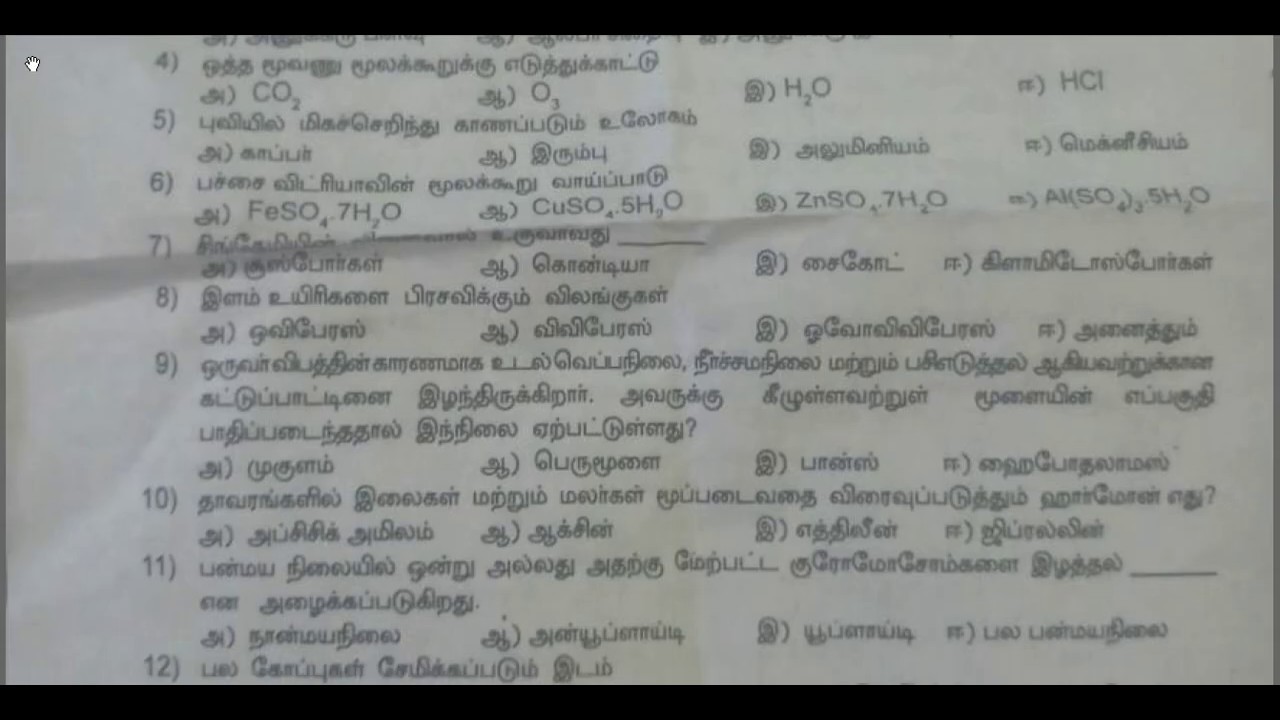 4) ஒத்த மூவணு மூலக்கூறுக்கு எடுத்துக்காட்டு
அ) CO₂ ஆ) O₃ இ) H₂O ஈ) HCl
5) புவியில் மிகச்செறிந்து காணப்படும் உலோகம்
அ) காப்பர் ஆ) இரும்பு இ) அலுமினியம் ஈ) மெக்னீசியம்
6) பச்சை விட்ரியாவின் மூலக்கூறு வாய்ப்பாடு
அ) FeSO₄.7H₂O ஆ) CuSO₄.5H₂O இ) ZnSO₄.7H₂O ஈ) Al(SO₄)₃.5H₂O
7) உருவாவது ______
அ) சூஸ்போர்கள் ஆ) கொன்டியா இ) சைகோட் ஈ) கிளாமிடோஸ்போர்கள்
8) இளம் உயிரிகளை பிரசவிக்கும் விலங்குகள்
அ) ஒவிபேரஸ் ஆ) விவிபேரஸ் இ) ஓவோவிவிபேரஸ் ஈ) அனைத்தும்
9) ஒருவர் விபத்தின் காரணமாக உடல் வெப்பநிலை, நீர்ச்சமநிலை மற்றும் பசிஎடுத்தல் ஆகியவற்றுக்கான
கட்டுப்பாட்டினை இழந்திருக்கிறார். அவருக்கு கீழுள்ளவற்றுள் மூளையின் எப்பகுதி
பாதிப்படைந்ததால் இந்நிலை ஏற்பட்டுள்ளது?
அ) முகுளம் ஆ) பெருமூளை இ) பான்ஸ் ஈ) ஹைபோதலாமஸ்
10) தாவரங்களில் இலைகள் மற்றும் மலர்கள் மூப்படைவதை விரைவுப்படுத்தும் ஹார்மோன் எது?
அ) அப்சிசிக் அமிலம் ஆ) ஆக்சின் இ) எத்திலீன் ஈ) ஜிப்ரல்லின்
11) பன்மய நிலையில் ஒன்று அல்லது அதற்கு மேற்பட்ட குரோமோசோம்களை இழத்தல் ______
என அழைக்கப்படுகிறது.
அ) நான்மயநிலை ஆ) அன்யூப்ளாய்டி இ) யூப்ளாய்டி ஈ) பல பன்மயநிலை
12) பல கோப்புகள் சேமிக்கப்படும் இடம்